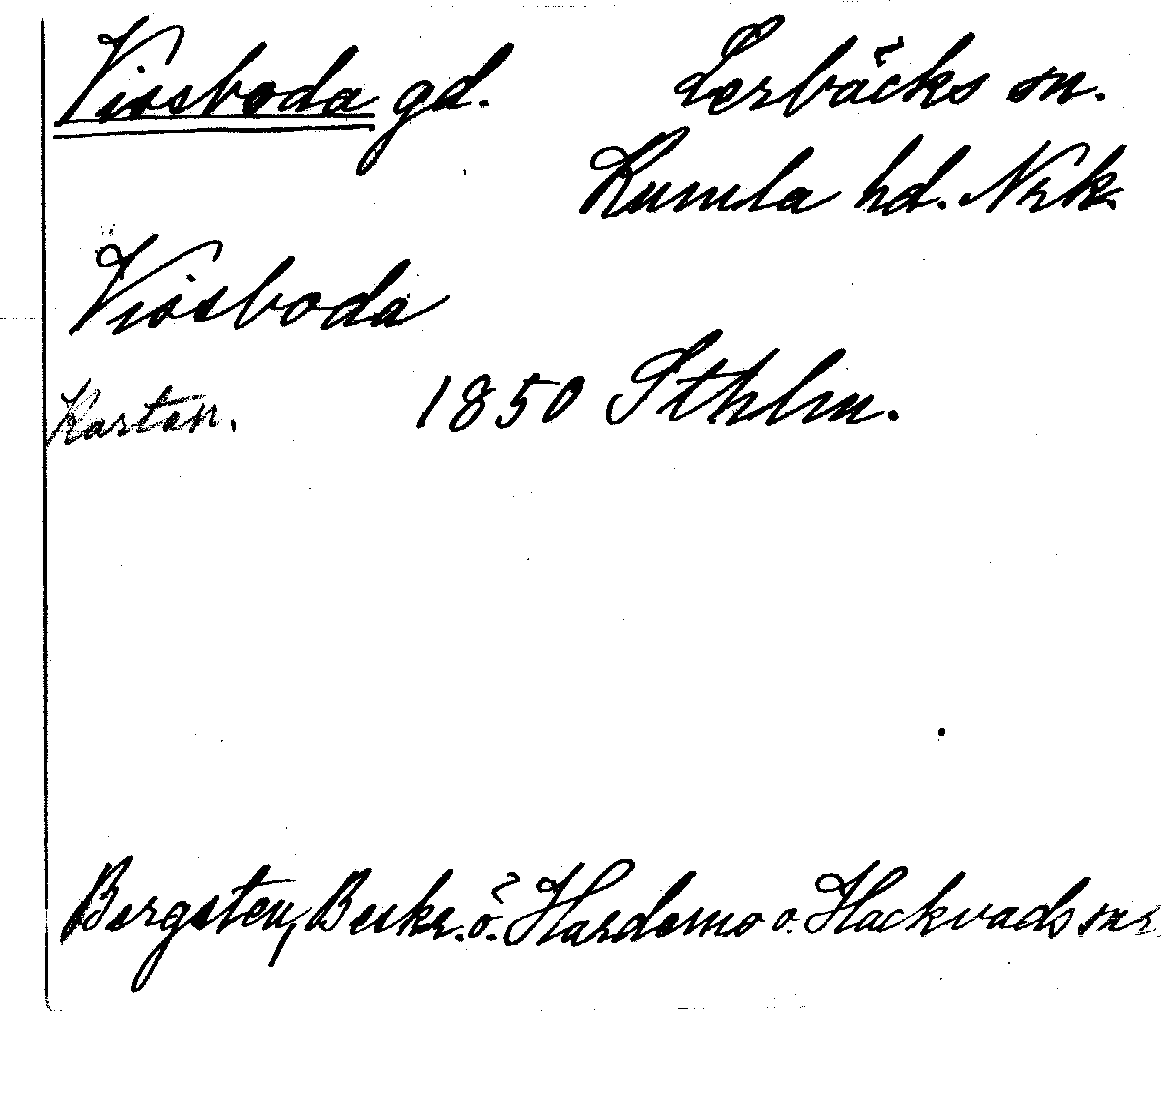 Vissboda gd. Lerbäcks sn.
Kumla hd. Nrk.
Vissboda
Kartan. 1850 Sthlm.
Bergsten, Beskr. ö. Hardemo o. Hackvads snr